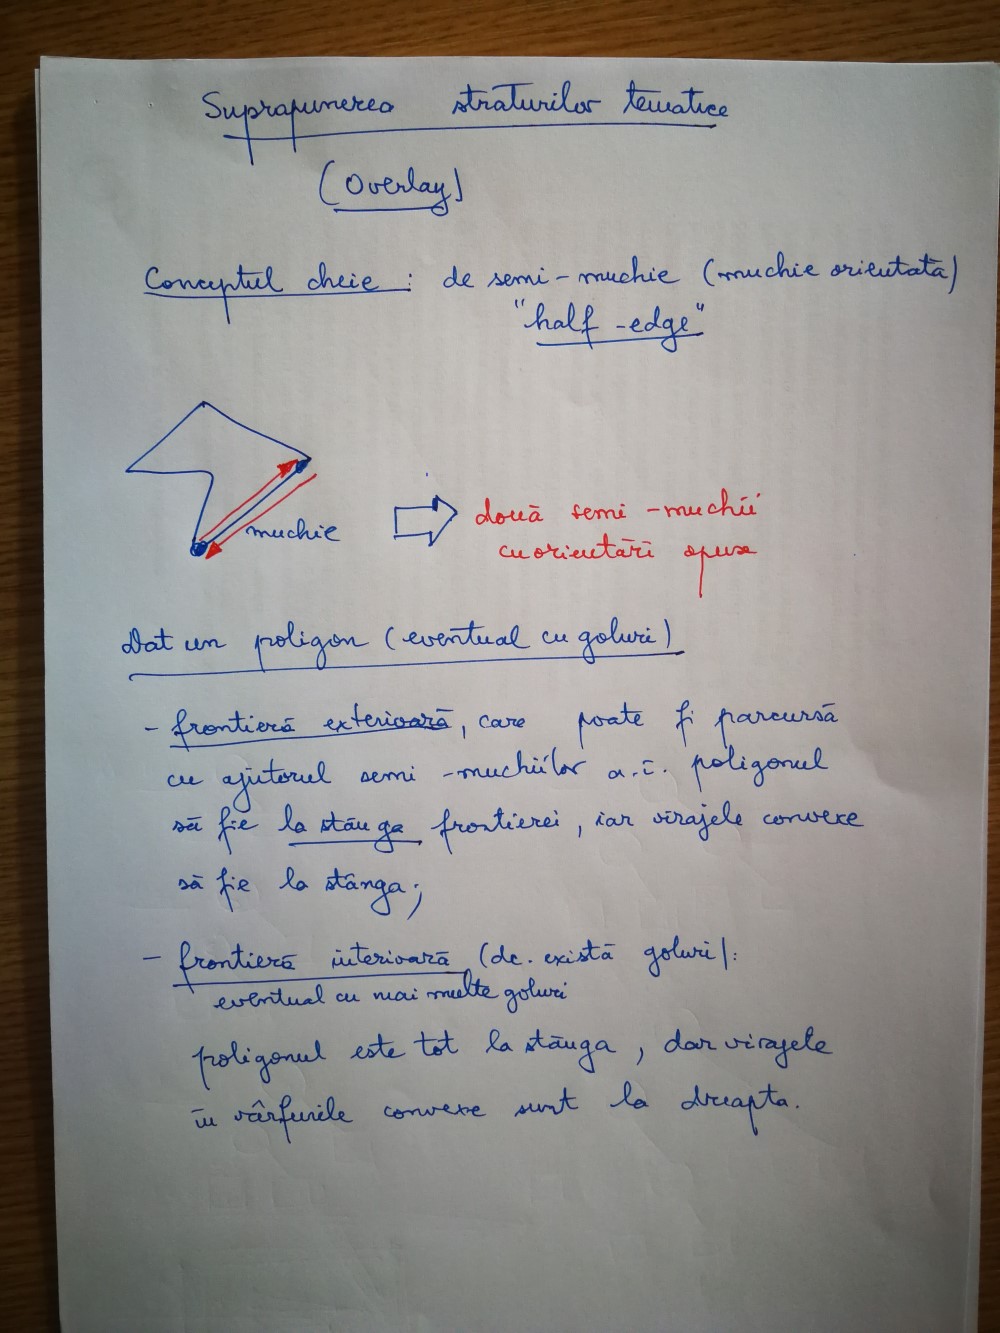 Suprapunerea straturilor tematice
(Overlay)
Conceptul cheie : de semi-muchie (muchie orientată)
"half-edge"
muchie
două semi-muchii
cu orientări opuse
Dat un poligon (eventual cu goluri)
- frontieră exterioară, care poate fi parcursă
cu ajutorul semi-muchiilor a.î. poligonul
să fie la stânga frontierei, iar virajele convexe
să fie la stânga;
- frontieră interioară (dc. există goluri):
eventual cu mai multe goluri
poligonul este tot la stânga, dar virajele
în vârfurile convexe sunt la dreapta.